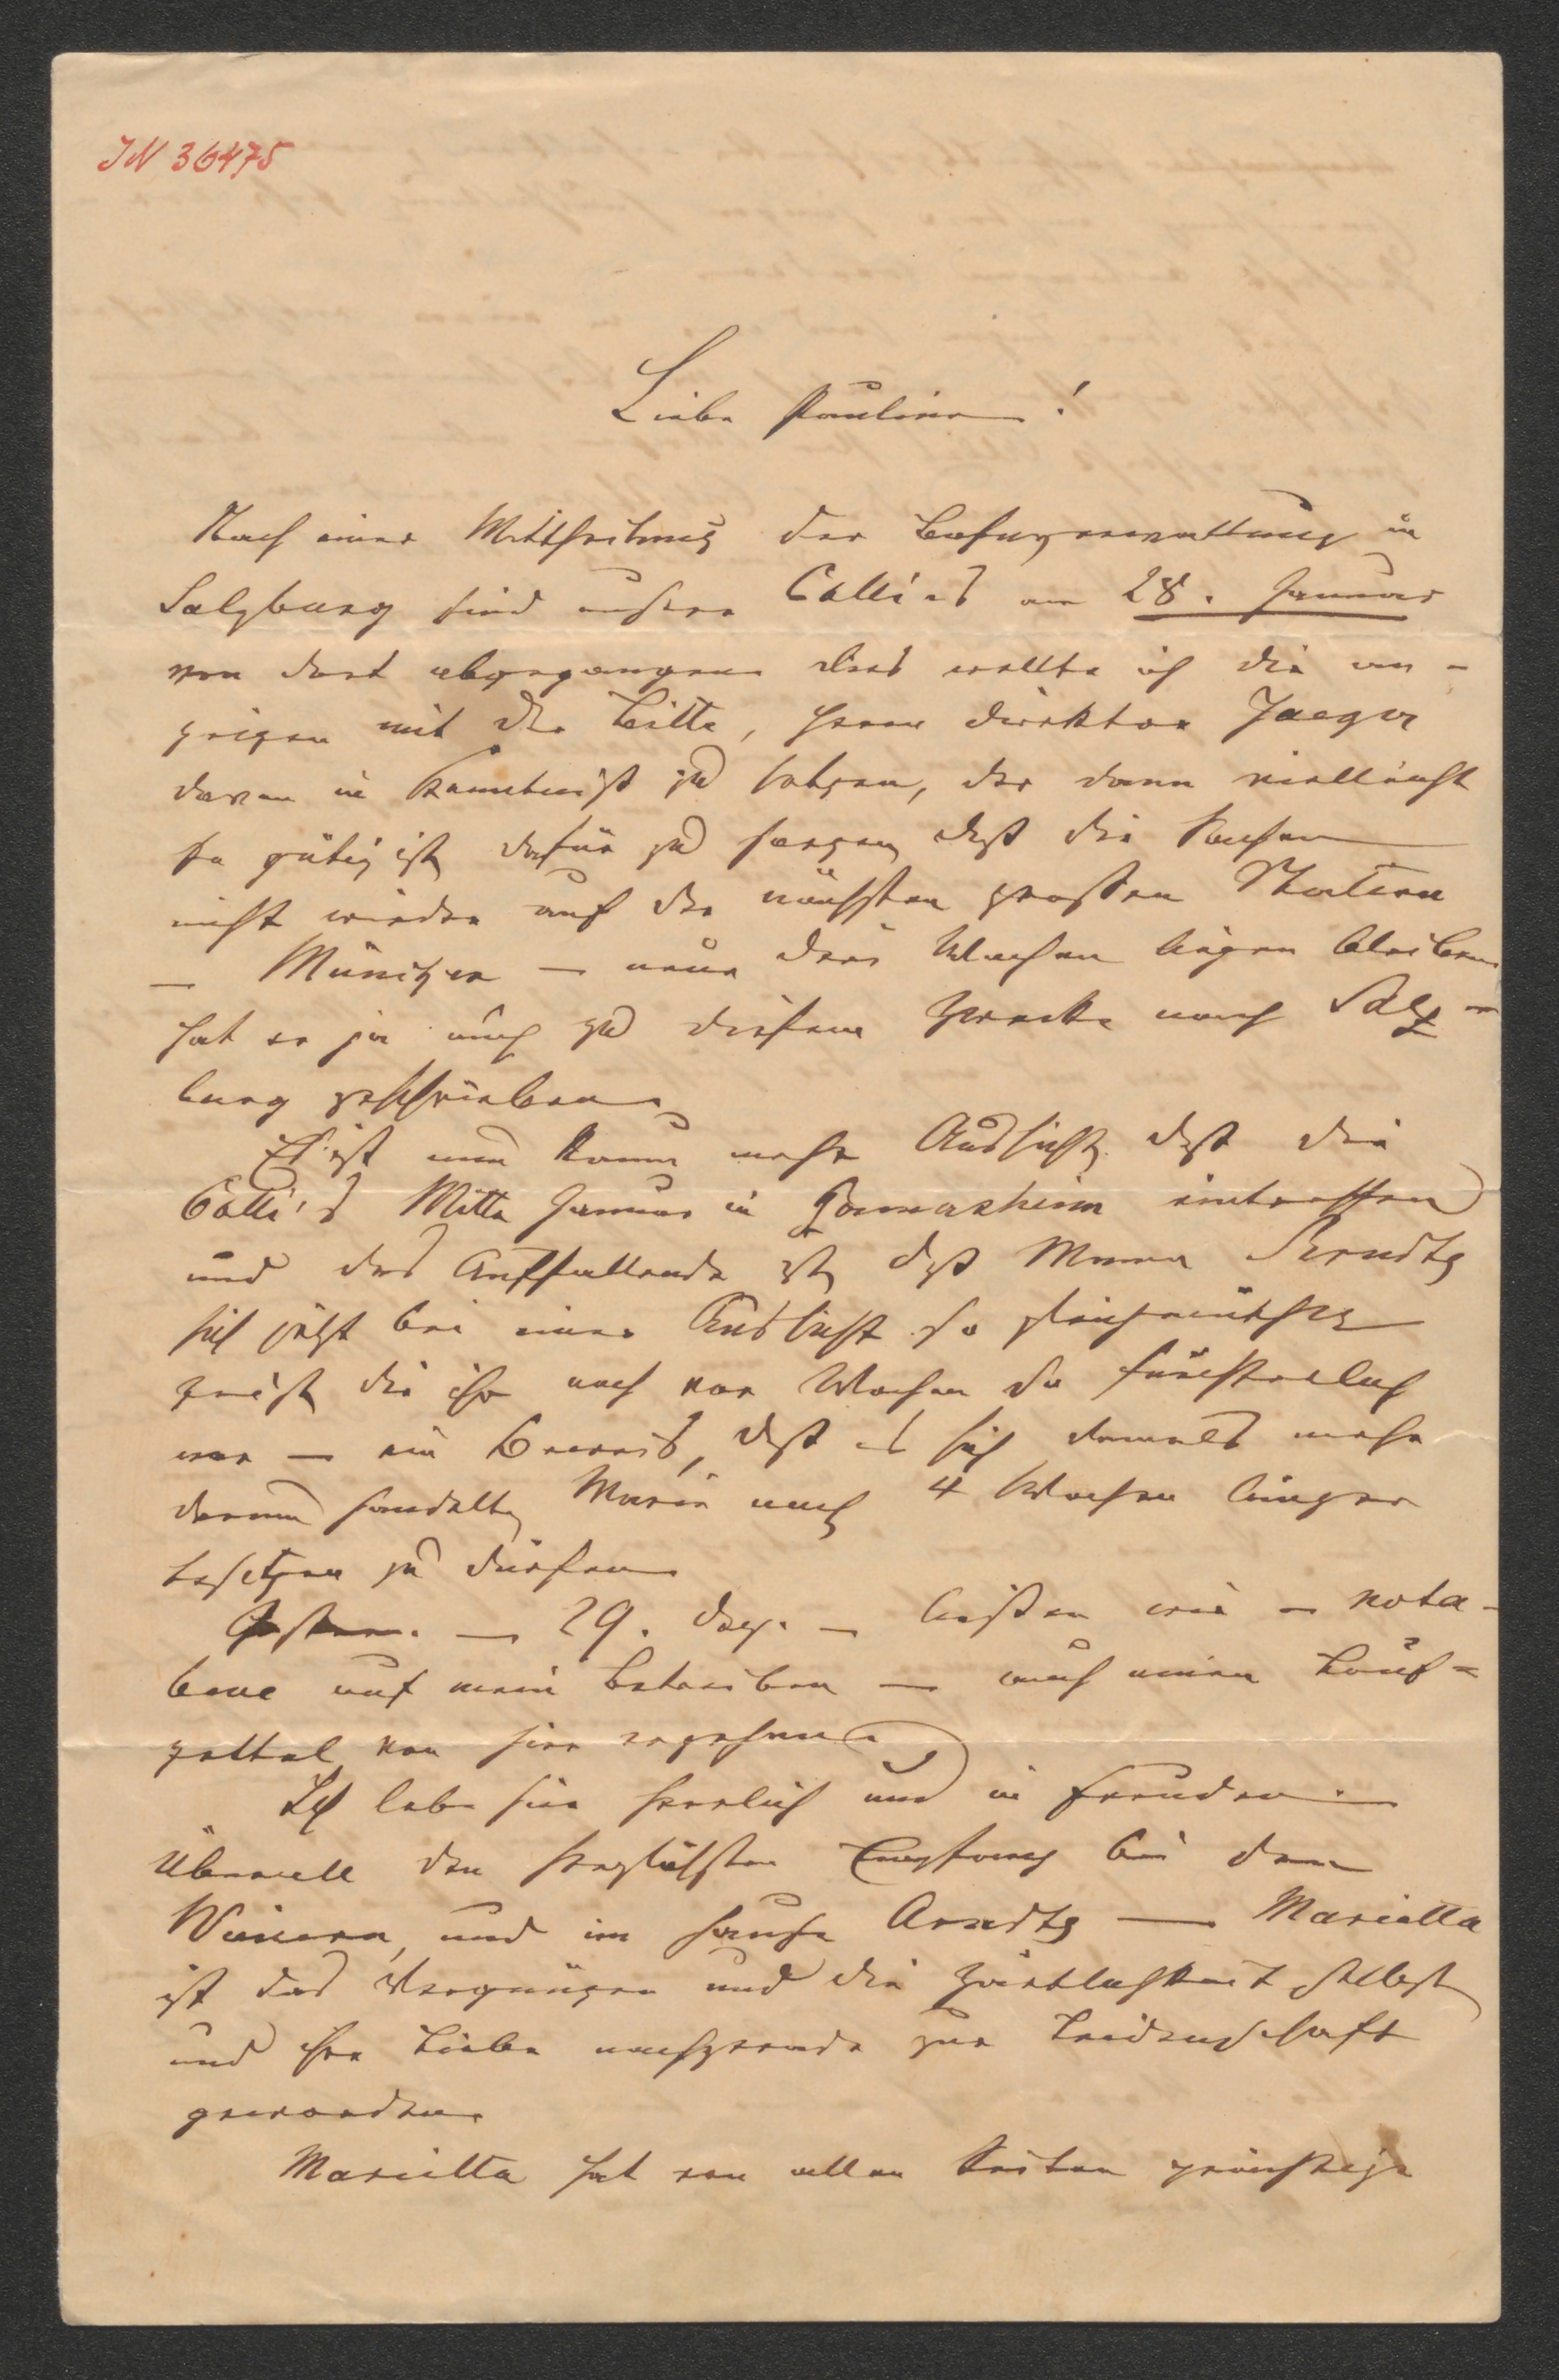 IN 36475
Liebe Pauline!
Nach einer Mittheilung der Bahnverwaltung in
Salzburg sind unsere Colli's am 28. Januar
von dort abgegangen dies wollte ich dir an-
zeigen mit der Bitte, Herrn Direktor Jaeger
davon in Kenntniß zu setzen, der dann vielleicht
so gütig ist, dafür zu sorgen daß die Sachen
nicht wieder auf der nächsten großen Station
– München – neue drei Wochen liegen bleiben
hat er ja auch zu diesem Zwecke nach Salz-
burg geschrieben.
Es ist nun kaum mehr Aussicht, daß die
Colli's Mitte Januar in eintreffen
und das Auffallende ist, daß Mama Arndts
sich jetzt bei einer Aussicht so gleichmüthig
zeigt, die ihr noch vor Wochen so fürchterlich
war – ein Beweis, daß es sich damals mehr
darum handelte, Marie noch 4 Wochen länger
besitzen zu dürfen.
Gestern – 29. Dez. – ließen wir – nota-
bene auf mein Betreiben – auch einen Lauf-
zettel von hier ergehen.
Ich lebe hier herrlich und in Freuden.
Überall den herzlichsten Empfang bei den
Wienern, und im Hause Arndts – Marietta
ist das Vergnügen und die Zärtlichkeit selbst
und ihre Liebe nachgerade zur Leidenschaft
geworden.
Marietta hat von allen Seiten günstige